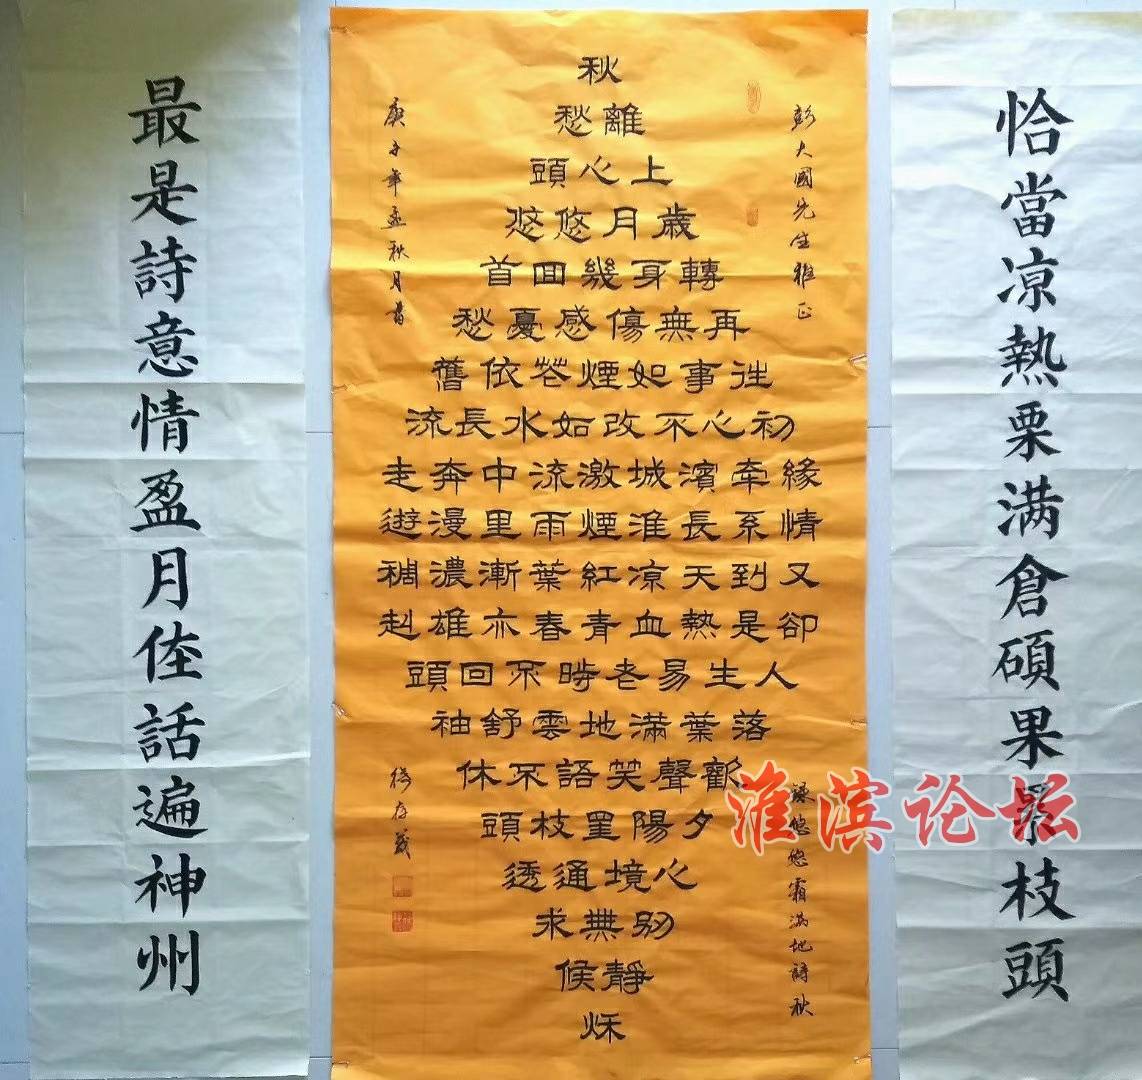 恰當凉熱栗满倉碩果累枝頭
彭大國先生雅正
錄悠悠霜满地詩秋
秋
離愁
上心頭
歲月悠悠
轉身幾回首
再無傷感憂愁
往事如煙花依舊
初心不改如水長流
緣牽濱城激流中奔走
情系長淮煙雨里漫遊
又到天凉紅葉漸濃稠
卻是熱血青春亦雄赳
人生易老時不回頭
落葉滿地雲舒袖
歡聲笑語不休
夕陽罣枝頭
心境通透
别無求
靜候
秌
庚子年孟秋月書
徐存義
最是詩意情盈月佳話遍神州
淮滨论坛